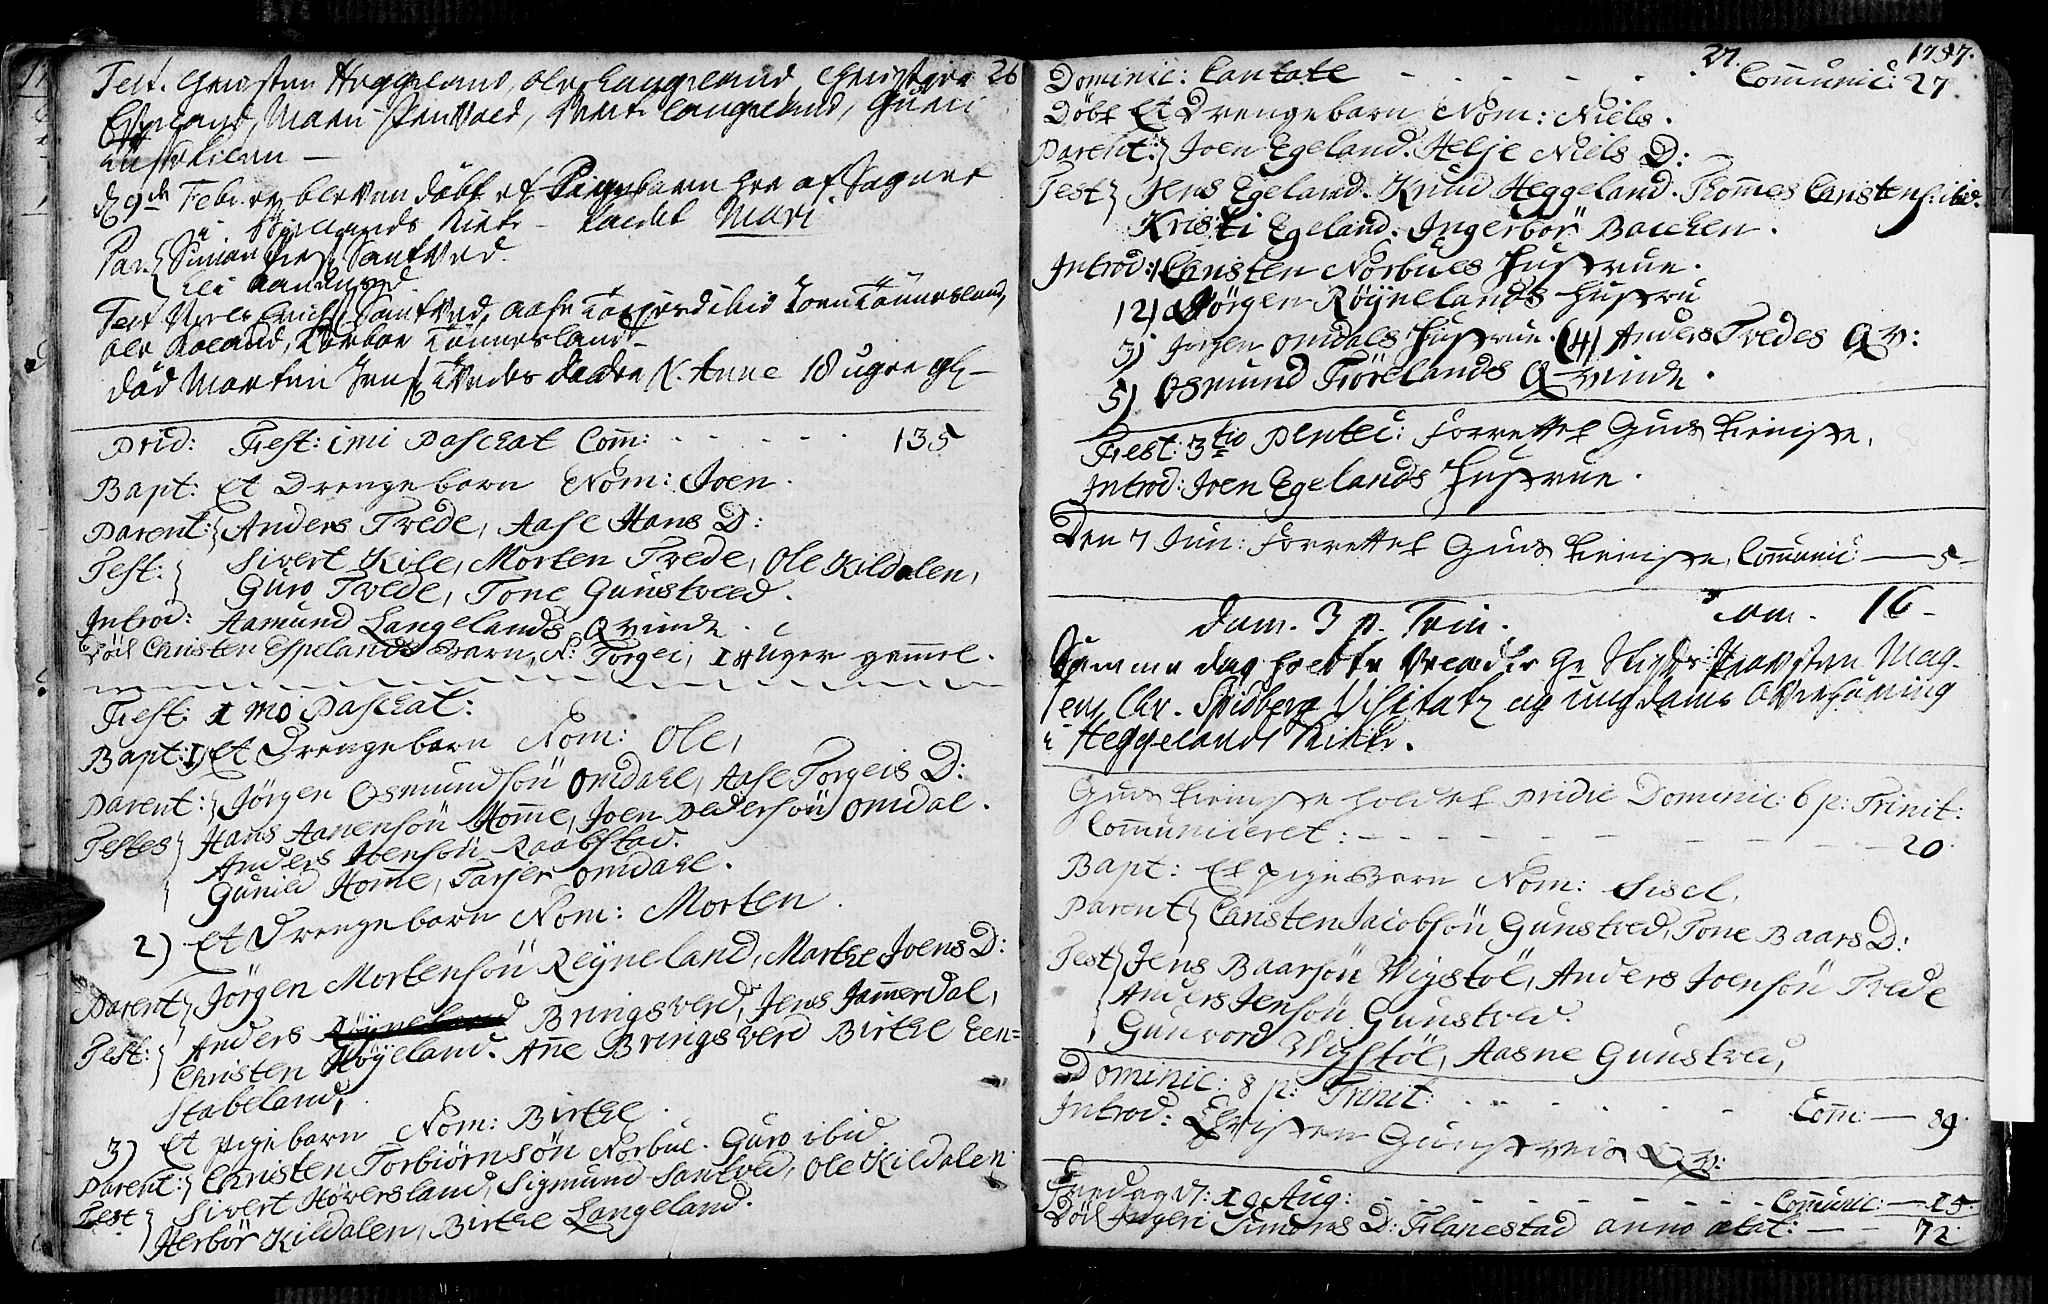 26
Test. Christen Heggeland, Ole Langeland Christen
Espeland, Maren
Langeland, Guri
d 9de Febr: er bleven döbt et Pigebarn her af Sognet
i Kirke – kaldet Mari
Par. Simon Santved.
Test Santved, Aase ibid Tönnesland,
Ole Roland, Torbor Tönnesland –
död Morten Jens Tvedes datter N. Anne 18 uger gl –
Prid: Fest: imi Paschat Com̄: - - - - - - 135
Bapt: Et Drengebarn Nom: Joen.
Parent: Anders Tvede, Aase Hans D:
Test: Sivert Kile, Morten Tvede, Ole Kildalen,
Guro Tvede, Tone Gunstved.
Introd: Aamund Langelands Qvinde.
Död Christen Espelands Barn, N: Torgei, 14 Uger gammel.
Fest: 1mo Paschat:
Bapt: 1) Et Drengebarn Nom: Ole,
Parent: Jörgen Osmundsön Omdahl, Aase Torgeis D:
Testes Hans Aanensön Hom̄e, Joen Pedersön Omdal.
Anders Stensön Raabstad.
Gunild Hom̄e, Tarjer Omdahl.
2) Et Drengebarn Nom: Morten.
Parent Jörgen Mortensön Reÿneland, Marthe Joens D:
Test: Anders Bringsverd, Jens Jam̄erdal,
Christen Höÿeland. An̄e Bringsverd Birthe Een=
Stabeland,
3) Et Pigebarn Nom: Birthe.
Parent: Christen Torbiörnsön Norbue. Guro ibid.
Test Sivert Höversland, Sigmund Santved, Ole Kildalen
Herbör Kildalen, Birthe Langeland.
27. 1757.
Dominic: Cantate - - - - - - Com̄unic: 27
Döbt Et Drengebarn Nom: Niels.
Parent: Joen Egeland. Helje Niels D:
Test Jens Egeland. Knud Heggeland. Tom̄es Christens: ibid.
Kristi Egeland. Ingerbör Bachen.
Introd: 1 Christen Norbues Hustrue.
2) Jörgen Röÿnelands Hustru
3) Jörgen Omdals Hustrue. (4) Anders Tvedes Qv:
5) Osmund Fiörelands Qvinde.
Fest: 3tio Pentec: Forrettet Guds tieniste.
Introd: Joen Egelands Hustrue.
Den 7 Jun: Forrettet Guds tieniste, Com̄unic: — 5 –
Dom. 3 p. Trin. Com. 16 –
Samme dag holdte Provsten Mag-
ens Chr. Spidberg Visitatz og ungdoms
i Heggelands Kirke.
Guds tieniste holdet Pridie Dominic: 6 p: Trinit:
Com̄uniceret: - - - - - - - - 20.
Bapt: Et Pige Barn Nom: Sisel,
Parent Christen Jacobsön Gunstved, Tone Baars D:
Test Jens Baarsön Wigstöl, Anders Joensön Tvede
Anders Jensön Gunstved.
Gunvord Wigstöl, Aasne Gunstved,
Dominic: 8 p: Trinit: - - - - - - Com̄: — 89.
Introd: Christen Gunstveds Qv:
Fredag d: 19 Aug: - - - - - - - - Com̄unic: — 15.
Död Ingeri Simons D: Flanestad anno ætat: — — 72